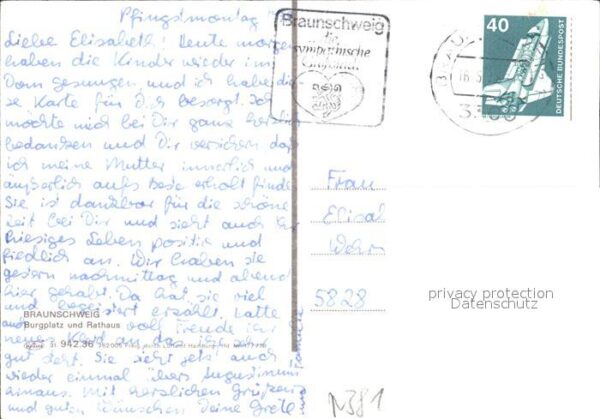 Pfingstmontag
Liebe Elisabeth! Heute morgen
haben die Kinder wieder im
Dom gesungen und ich habe die-
se Karte für Dich besorgt. Ich
möchte mich bei Dir ganz herzlich
bedanken und Dir versichern daß
ich meine Mutter innerlich und
äußerlich aufs beste erholt finde
Sie ist dankbar für die schöne
Zeit bei Dir und sieht auch ihr
hiesiges Leben positiv und
friedlich an. Wir haben sie
gestern nachmittag und abend
hier gehabt. Da hat sie viel
und begeistert erzählt. Hatte
auch voll Freude ihr
neues Kleid an das ihr sehr
gut steht. Sie sieht jetzt auch
wieder einmal übers Augustinum
hinaus. Mit herzlichen Grüßen
und guten Wünschen Deine Grete
und Familie
BRAUNSCHWEIG
Burgplatz und Rathaus
31 942.36
Braunschweig
die
sympathische
40
DEUTSCHE BUNDESPOST
Frau
Elisab
5828
privacy protection
Datenschutz
N381